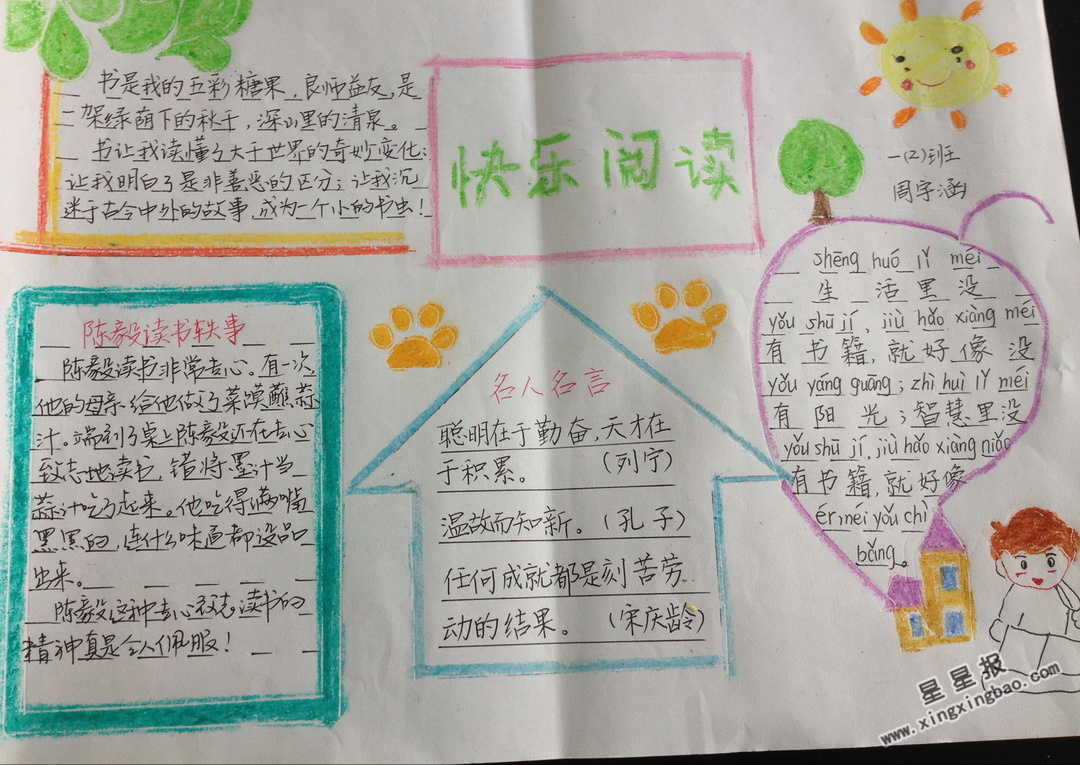 书是我的五彩糖果,良师益友,是
架绿荫下的秋千,深山里的清泉。
书让我读懂了大于世界的奇妙变化;
让我明白了是非善恶的区分;让我沉
迷于古今中外的故事,成为一个小的书虫!
快乐阅读
一(2)班
周字涵
陈毅读书轶事
陈毅读书非常专心。有一次
他的母亲给他做了菜馍蘸蒜
汁。端到了桌上陈毅还在专心
致志地读书,错将墨汁当
蒜汁吃了起来。他吃得满嘴
黑黑的,连什么味道都没品
出来。
陈毅这种专心致志读书的
精神真是令人佩服!
名人名言
聪明在于勤奋,天才在
于积累。(列宁)
温故而知新。(孔子)
任何成就都是刻苦劳
动的结果。(宋庆龄)
shēng huó lǐ méi
生活里没
yǒu shū jí, jiù hǎo xiàng méi
有书籍,就好像没
yǒu yáng guāng; zhì huì lǐ méi
有阳光;智慧里没
yǒu shū jí, jiù hǎo xiàng niǎo
有书籍,就好像
ér méi yǒu chì
bǎng。
星星报
www.xingxingbao.com